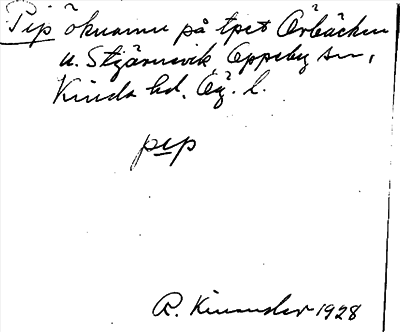 Pip öknamn på tpet Örbäcken
u. Stjärnevik, Oppeby sn,
Kinda hd. Ög. l.
pip
R. Kinander 1928